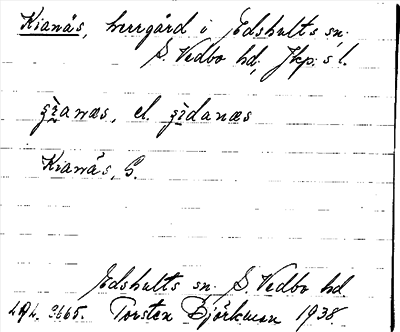 Kianäs, herrgård i Edshults sn.
S. Vedbo hd, Jkp:s l.
anæs, el. danæs
Kianäs, G.
Edshults sn. S. Vedbo hd
2665. Torsten Björkman 1938.